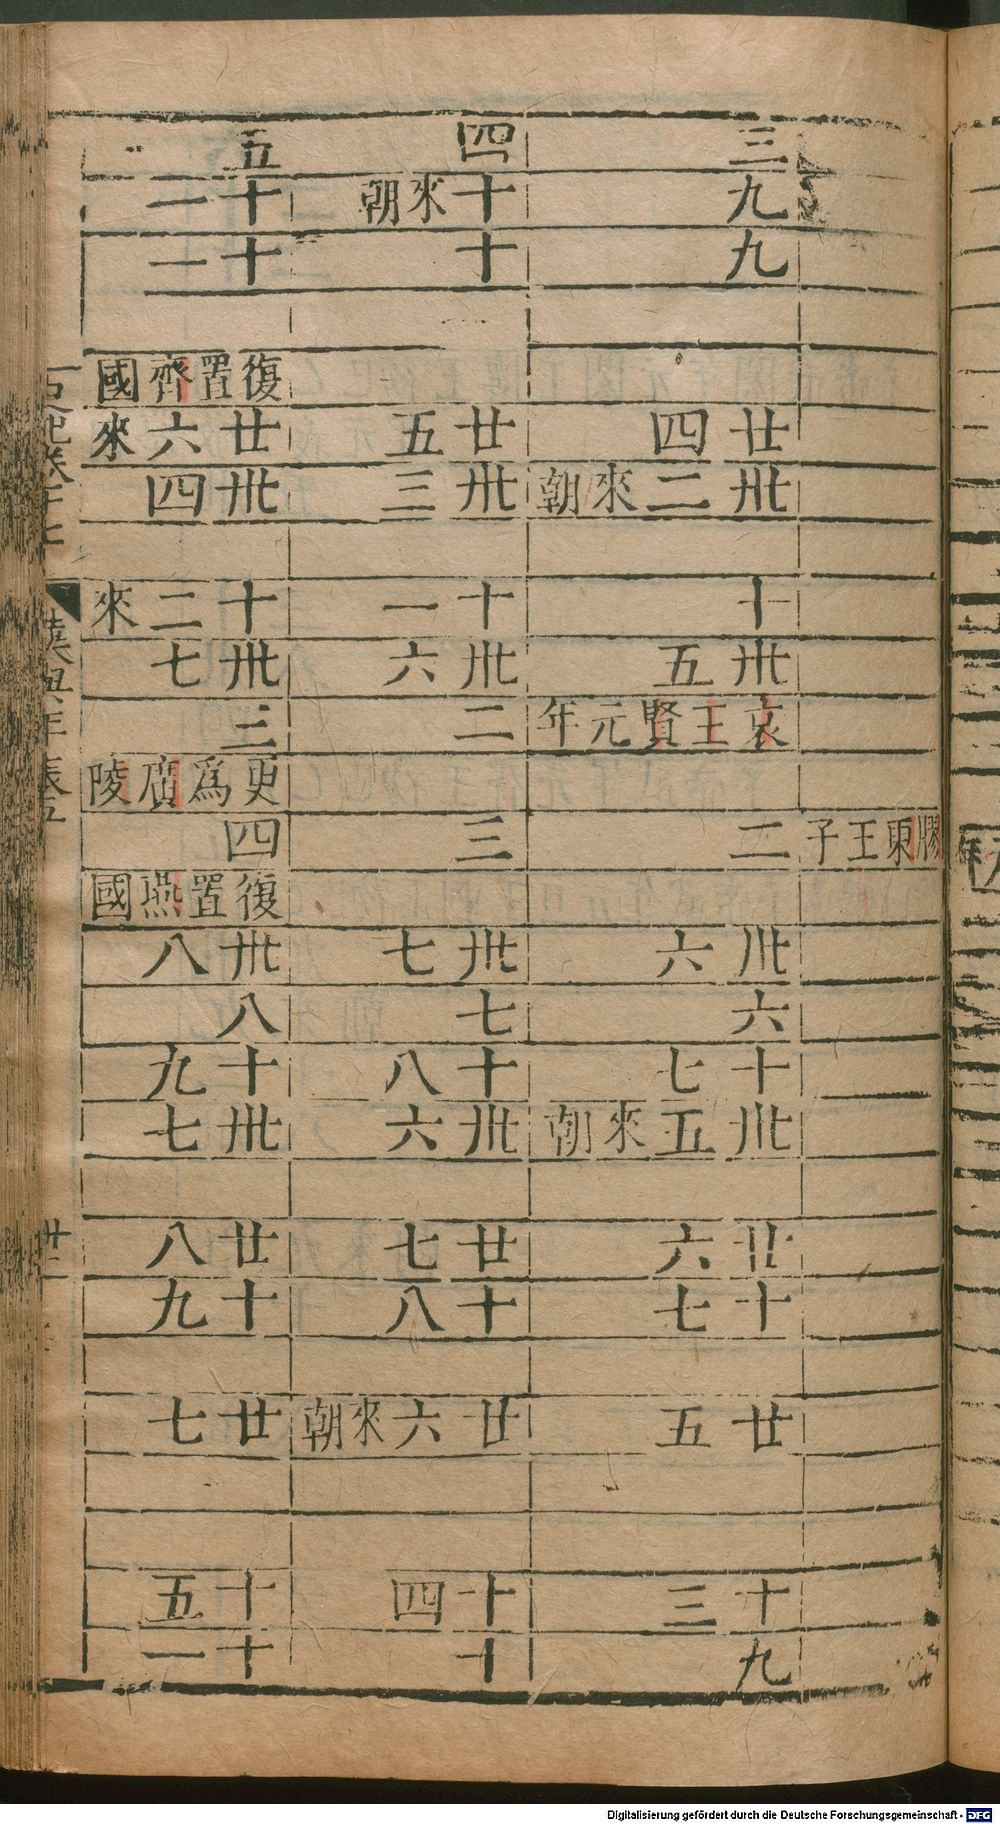 膠東王子
三
九
九
廿四
卅二來朝
十
卅五
哀王賢元年
二
卅六
六
十七
卅五來朝
廿六
十七
廿五
十三
九
四
十來朝
十
廿五
卅三
十一
卅六
二
三
卅七
七
十八
卅六
廿七
十八
廿六來朝
十四
十
五
十一
十一
復置齊國
廿六來
卅四
十二來
卅七
三
更爲廣陵
四
復置燕國
卅八
八
十九
卅七
廿八
十九
廿七
十五
十一
史記卷十七
漢興年表五
Digitalisierung gefördert durch die Deutsche Forschungsgemeinschaft - DFG